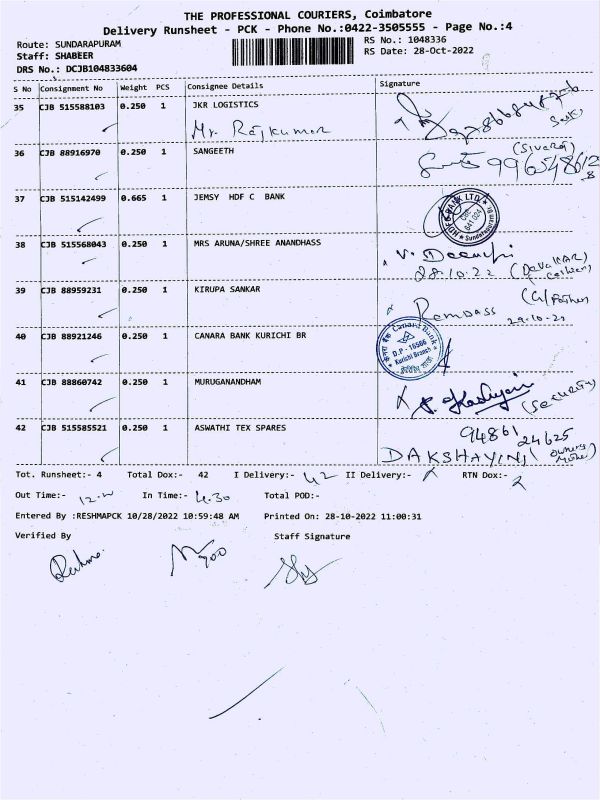 THE PROFESSIONAL COURIERS, Coimbatore
Delivery Runsheet - PCK - Phone No.:0422-3505555 - Page No.:4
Route: SUNDARAPURAM RS No.: 1048336
Staff: SHABEER RS Date: 28-Oct-2022
DRS No.: DCJB104833604
S No Consignment No Weight PCS Consignee Details Signature
35 CJB 515588103 0.250 1 JKR LOGISTICS
Mr. Rajkumar
36 CJB 88916970 0.250 1 SANGEETH (Sivaraj)
37 CJB 515142499 0.665 1 JEMSY HDF C BANK
HDFC BANK LTD. 641 024 Sundarapuram Br
38 CJB 515568043 0.250 1 MRS ARUNA/SHREE ANANDHASS
28.10.22
39 CJB 88959231 0.250 1 KIRUPA SANKAR
Ramdass
40 CJB 88921246 0.250 1 CANARA BANK KURICHI BR
Canara Bank D.P - 16566 Kurichi Branch
41 CJB 88860742 0.250 1 MURUGANANDHAM
(Security)
42 CJB 515585521 0.250 1 ASWATHI TEX SPARES
94861 24625
DAKSHAYINI
Tot. Runsheet:- 4 Total Dox:- 42 I Delivery:- 42 II Delivery:- RTN Dox:-
Out Time:- In Time:- 4.30 Total POD:-
Entered By :RESHMAPCK 10/28/2022 10:59:48 AM Printed On: 28-10-2022 11:00:31
Verified By Staff Signature